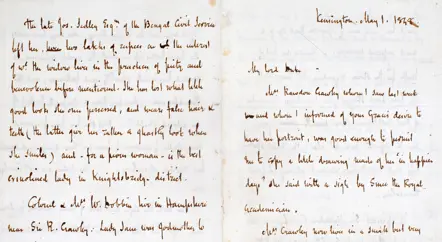 The late Jos. Sedley Esqre of the Bengal Civil Service
left her two lakhs of rupees on the interest
of wh the widow lives in the practices of piety and
benevolence before mentioned. She has lost what little
good looks she once possessed, and wears false hair &
teeth (the latter give her rather a ghastly look when
she smiles) and - for a pious woman - is the best
crinolined lady in Knightsbridge district.
Colonel & Mrs W. Dobbin live in Hampshire
near Sir R. Crawley. Lady Jane was godmother to
Kensington. May 1. 1848.
My lord
Mrs Rawdon Crawley whom I saw last week
and whom I informed of your Graces desire to
have her portrait, was good enough to permit
me to copy a little drawing made of her "in happier
days" she said with a sigh by Smee the Royal
Academician.
Mrs Crawley now lives in a small but very